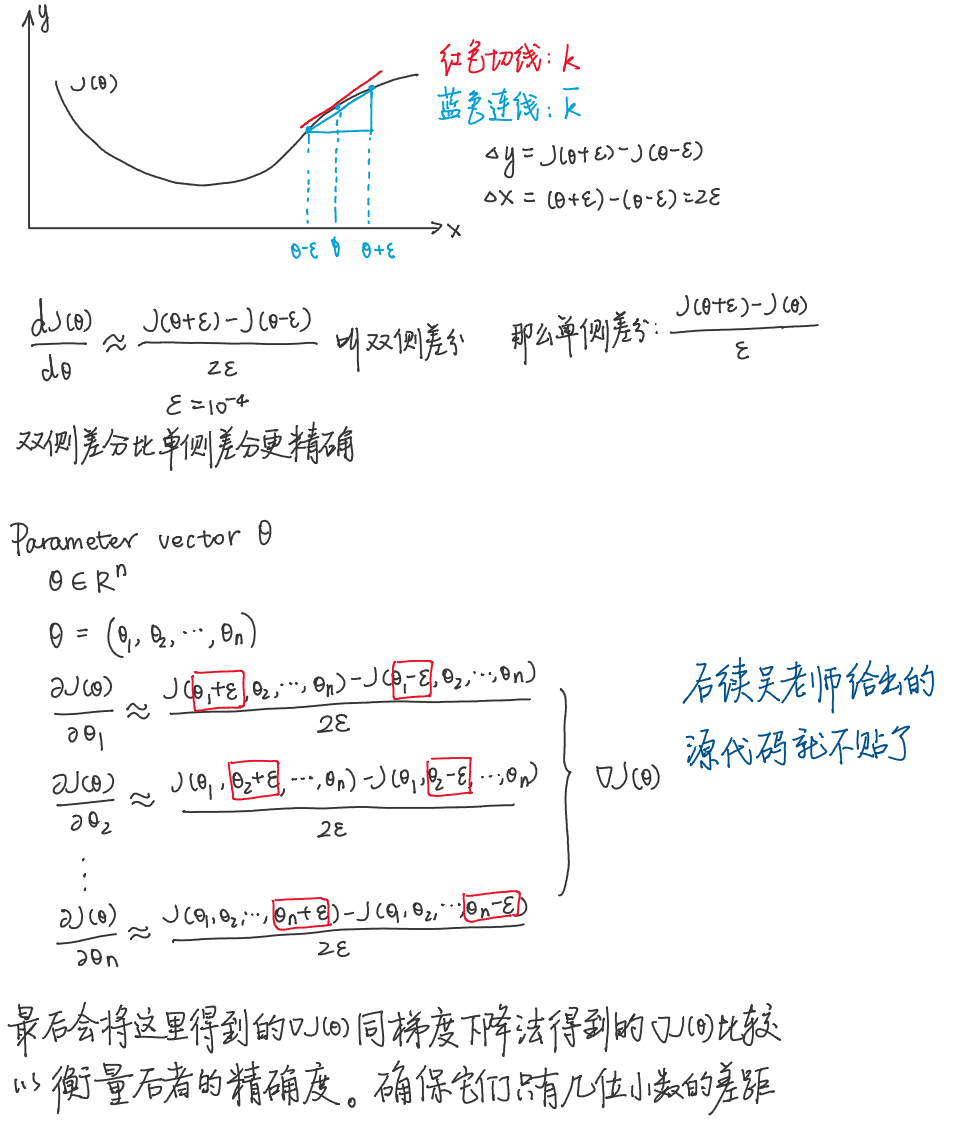 y
J(θ)
红色切线: k
蓝色连线: k̄
Δy = J(θ+ε)-J(θ-ε)
Δx = (θ+ε)-(θ-ε)=2ε
x
θ-ε θ θ+ε
dJ(θ)/dθ ≈ (J(θ+ε)-J(θ-ε))/2ε 叫双侧差分 那么单侧差分: (J(θ+ε)-J(θ))/ε
ε=10⁻⁴
双侧差分比单侧差分更精确
Parameter vector θ
θ∈Rⁿ
θ = (θ₁, θ₂, ⋯, θn)
∂J(θ)/∂θ₁ ≈ (J(θ₁+ε, θ₂, ⋯, θn)-J(θ₁-ε, θ₂, ⋯, θn))/2ε
∂J(θ)/∂θ₂ ≈ (J(θ₁, θ₂+ε, ⋯, θn)-J(θ₁, θ₂-ε, ⋯, θn))/2ε
⋮
∂J(θ)/∂θn ≈ (J(θ₁, θ₂, ⋯, θn+ε)-J(θ₁, θ₂, ⋯, θn-ε))/2ε
∇J(θ)
后续吴老师给出的
源代码就不贴了
最后会将这里得到的∇J(θ)同梯度下降法得到的∇J(θ)比较
以衡量后者的精确度。确保它们只有几位小数的差距